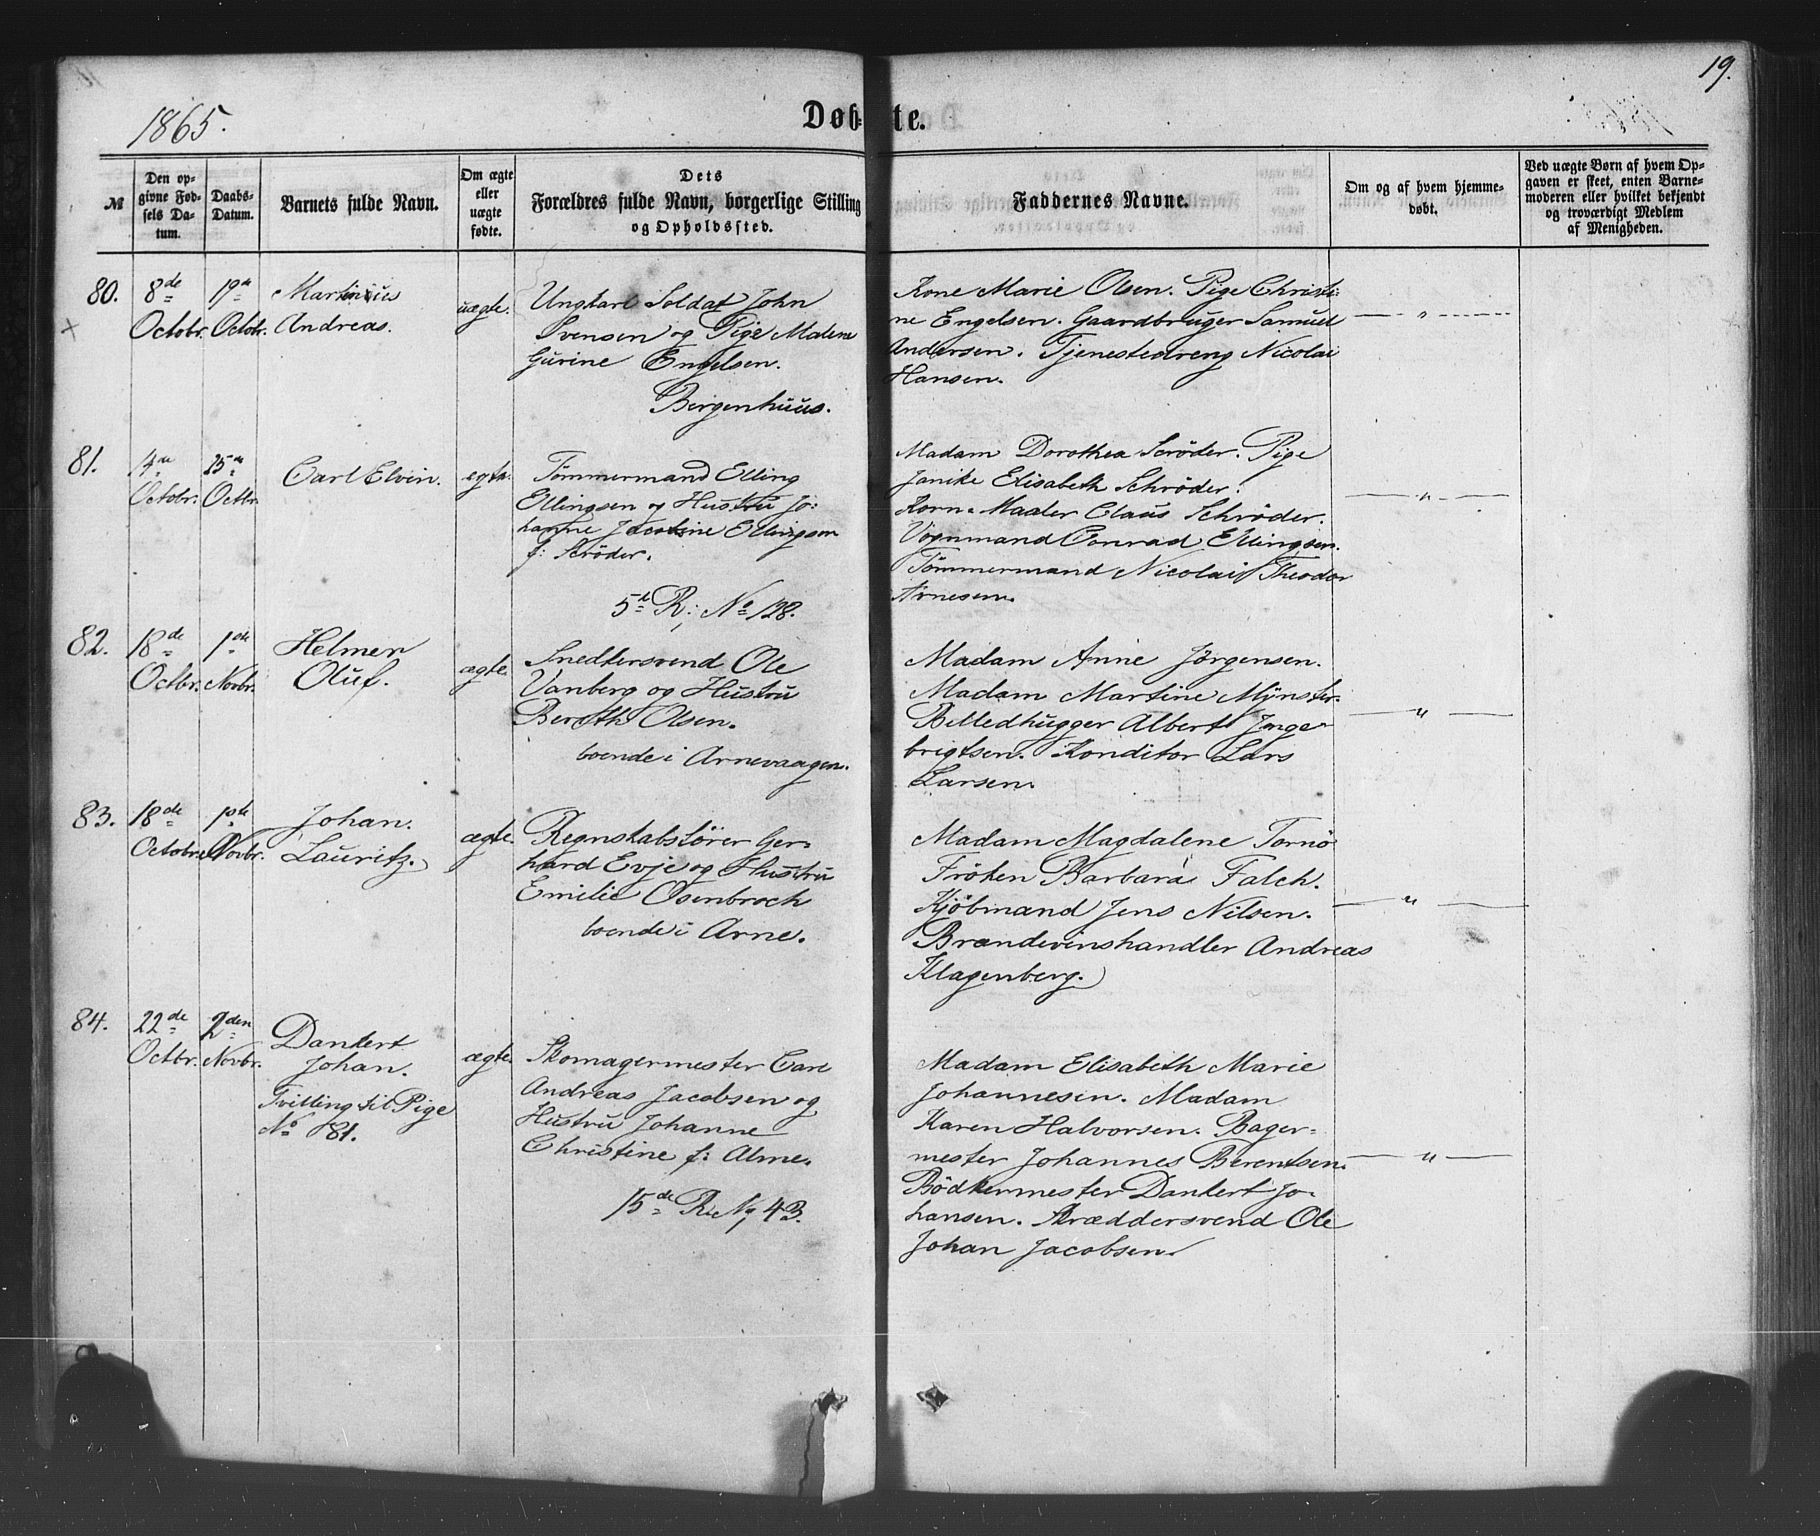 19.
1865.
Døb- te.
№
Den op-
givne Fød-
sels Da-
tum.
Daabs-
Datum.
Barnets fulde Navn.
Om ægte
eller
uægte
fødte.
Dets
Forældres fulde Navn, borgerlige Stilling
og Opholdssted.
Faddernes Navne.
Om og af hvem hjemme-
døbt.
Ved uægte Børn af hvem Op-
gaven er skeet, enten Barne-
moderen eller hvilket bekjendt
og troværdigt Medlem
af Menigheden.
80.
8de
Octobr.
19de
Octobr.
Martinius
Andreas.
uægte.
Ungkarl Soldat John
Svensen og Pige Malene
Gurine Engelsen.
Bergenhuus.
Kone Marie Olsen. Pige Christi-
ne Engelsen. Gaardbruger Samuel
Andersen. Tjenestedreng Nicolai
Hansen.
— " —
81.
Octobr.
25de
Octbr.
Carl Elvin.
Tømmermand Elling
Ellingsen og Hustru Jo:
hanne Jacobine Ellingsen
f: Scrøder.
5te R; No 128.
Madam Dorothea Scrøder. Pige
Janike Elisabeth Schrøder.
Korn-Maaler Claus Schrøder.
Vognmand Conrad Ellingsen.
Tømmermand Nicolai Theodor
Arnesen.
— " —
82.
18de
Octbr.
1ste
Novbr.
Helmer
Oluf.
ægte.
Snedkersvend Ole
Vanberg og Hustru
Berethe Olsen.
boende i Arnevaagen.
Madam Anne Jørgensen.
Madam Martine Mynster.
Billedhugger Albert Inge-
brigtsen. Konditor Lars
Larsen.
— " —
83.
18de
Octobr.
1ste
Novbr.
Johan
Lauritz.
ægte.
Regnskabsfører Ger-
hard Evje og Hustru
Emilie Osenbroch
boende i Arne.
Madam Magdalene Tornø
Frøken Barbara Falch.
Kjøbmand Jens Nilsen.
Brændevinshandler Andreas
Klagenberg.
— " —
84.
22de
Octbr.
2den
Novbr.
Dankert
Johan.
Tvilling til Pige
No 81.
ægte.
Skomagermester Carl
Andreas Jacobsen og
Hustru Johanne
Christine f: Alme.
15de R: No 43.
Madam Elisabeth Marie
Johannesen. Madam
Karen Halvorsen. Bager-
mester Johannes Berentsen.
Bødkermester Dankert Jo-
hansen. Skræddersvend Ole
Johan Jacobsen.
— " —